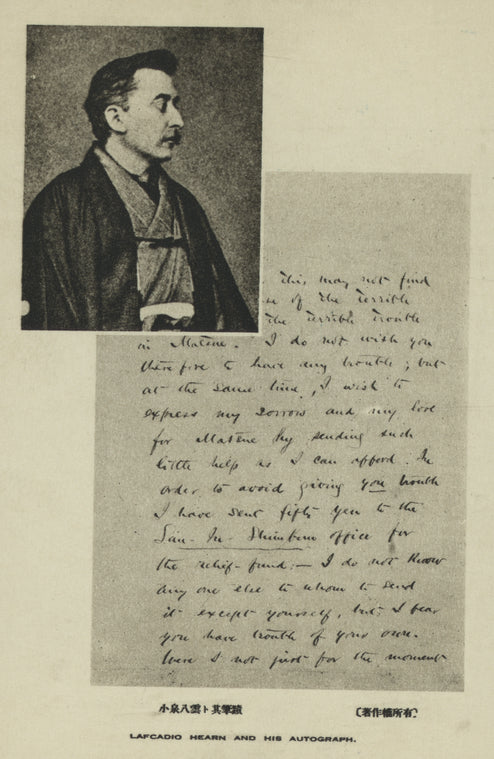 this may not find
se of the terrible
the terrible trouble
in Matsue. I do not wish you
therefore to have any trouble; but
at the same time, I wish to
express my sorrow and my love
for Matsue by sending such
little help as I can afford. In
order to avoid giving you trouble
I have sent fifty yen to the
San-In-Shimbun office for
the relief-fund:— I do not know
any one else to whom to send
it except yourself, but I fear
you have trouble of your own.
Were I not just for the moment
小泉八雲ト其筆蹟
〔著作権所有〕
LAFCADIO HEARN AND HIS AUTOGRAPH.